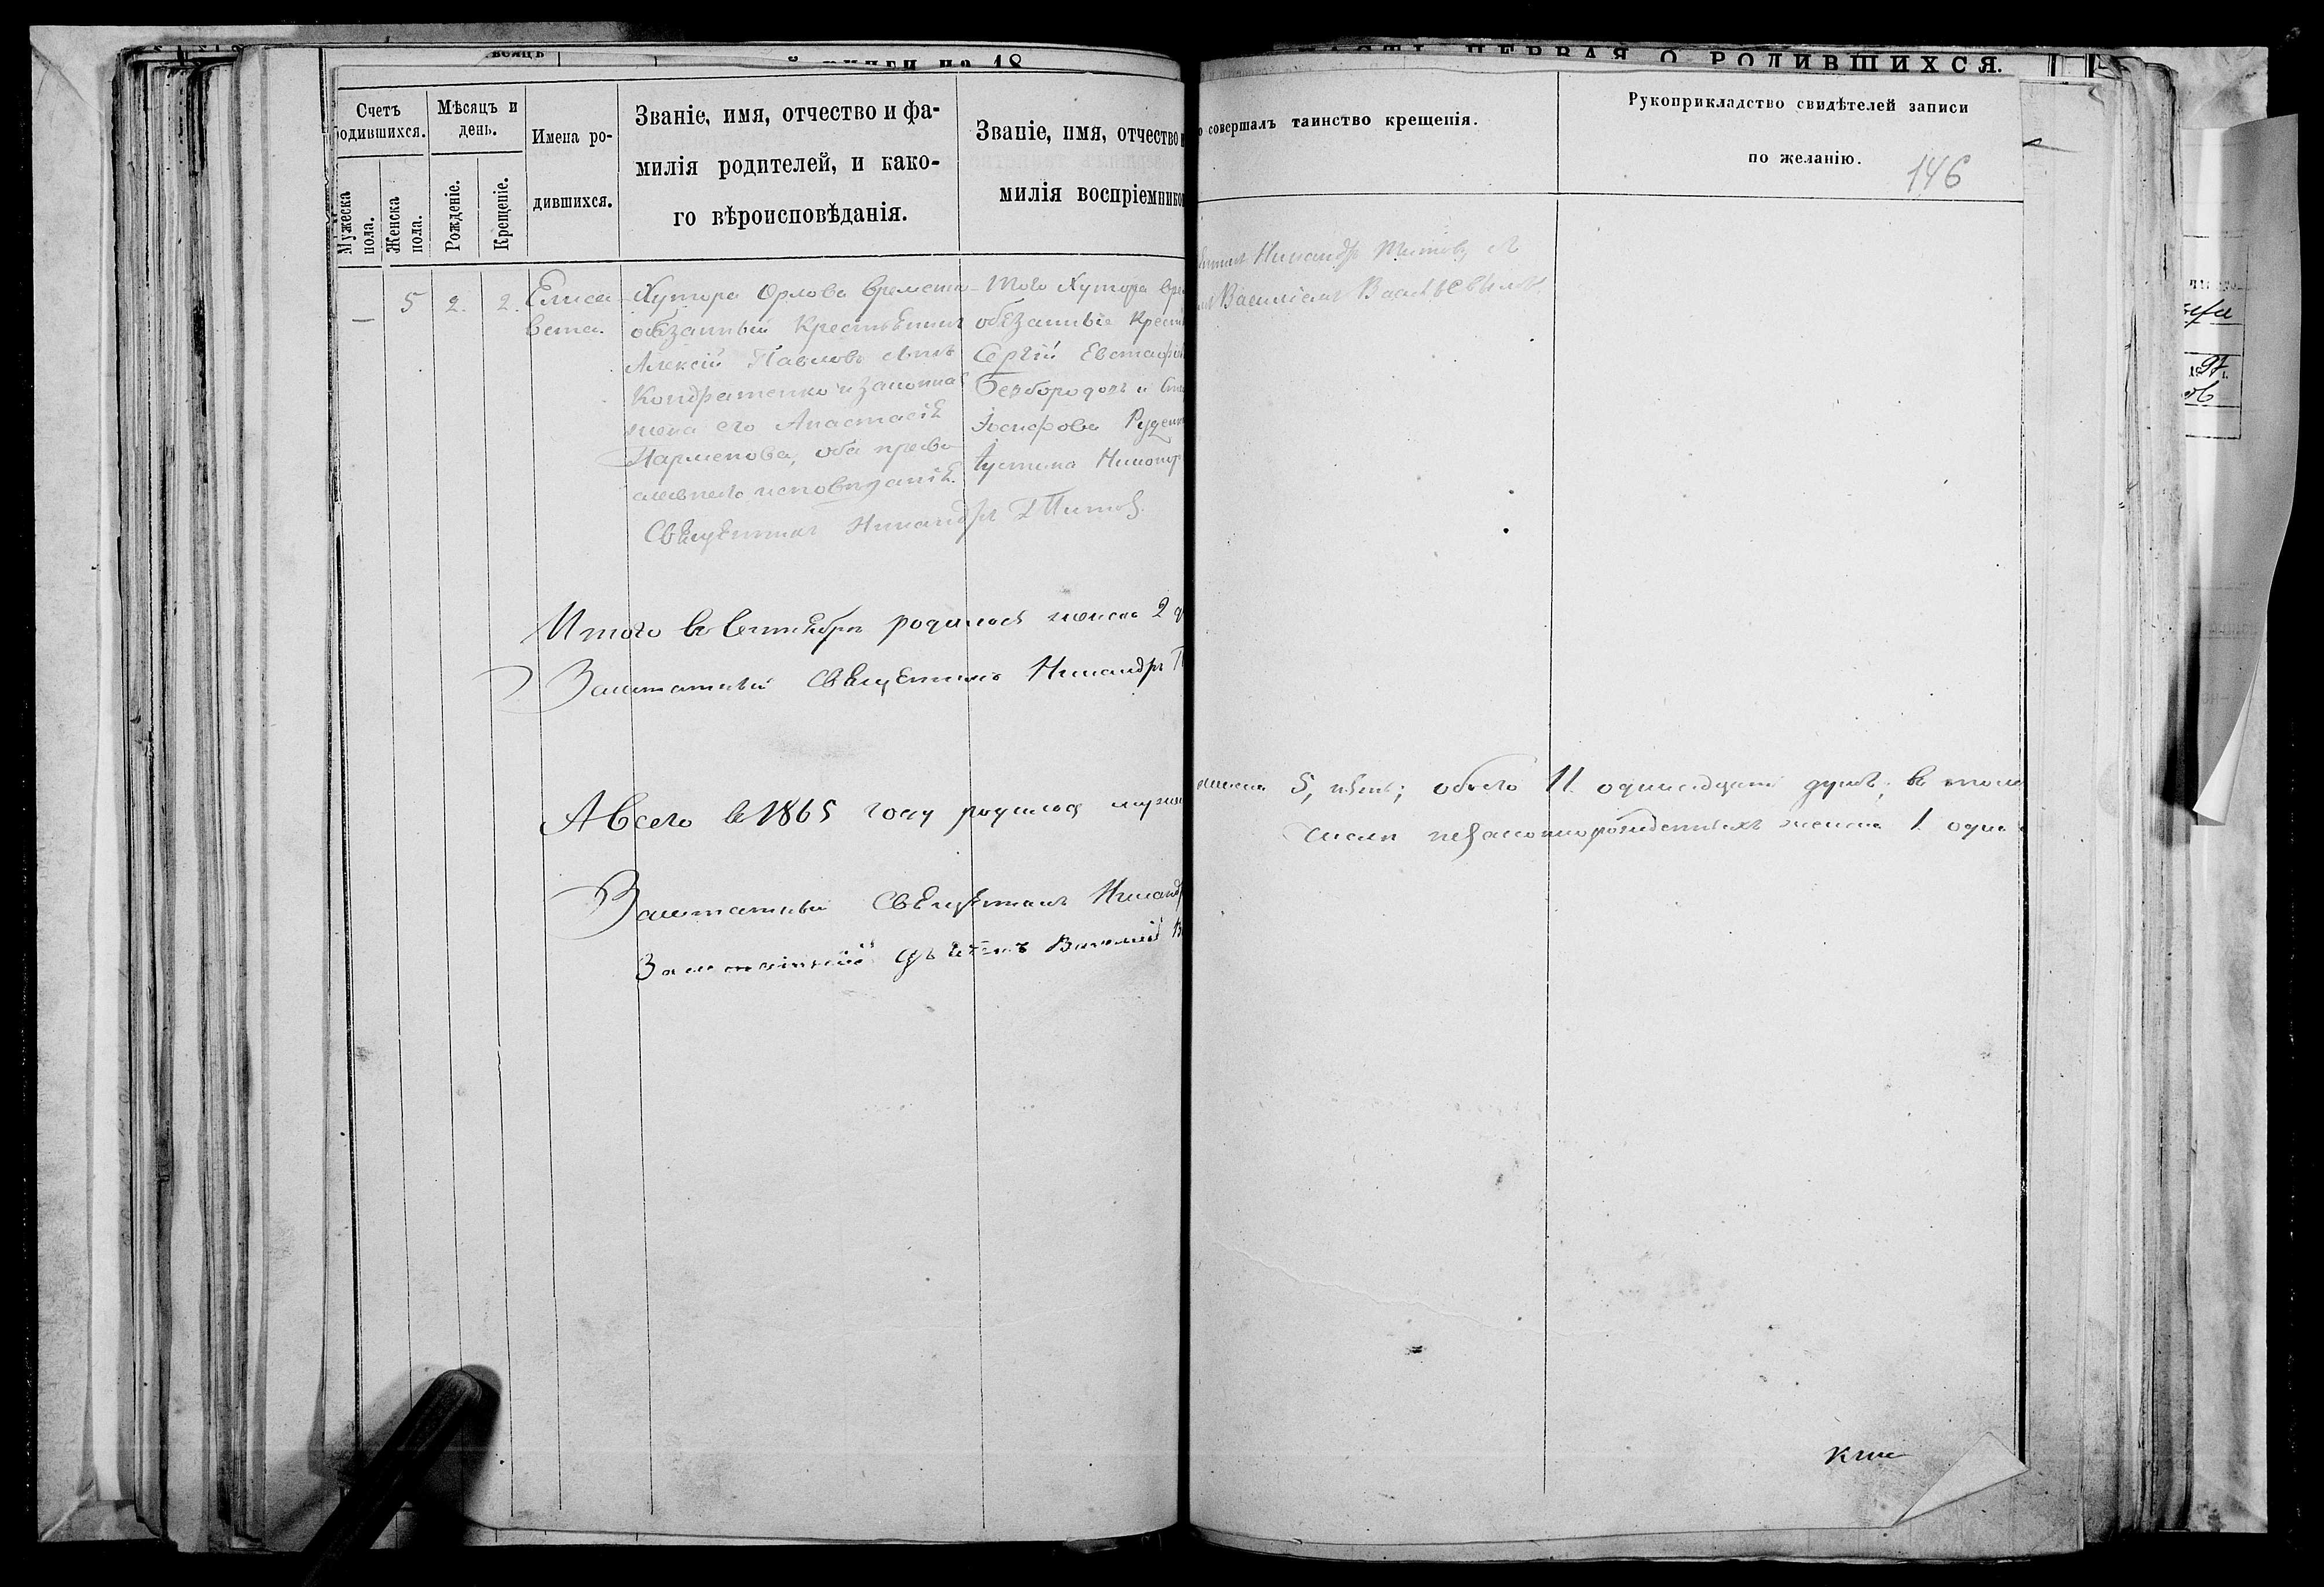 ПЕРВАЯ О РОДИВШИХСЯ.
Счетъ родившихся.
Мужеска пола.
Женска пола.
Мѣсяцъ и день.
Рожденіе.
Крещеніе.
Имена ро-
дившихся.
Званіе, имя, отчество и фа-
милія родителей, и како-
го вѣроисповѣданія.
Званіе, имя, отчество
милія воспріемнико
совершалъ таинство крещенія.
Рукоприкладство свидѣтелей записи
по желанію.
146
5 2. 2.
Елиса
вета.
Хутора Орлова временно
обязанный Крестьянинъ
Алексій Павловъ сынъ
Кондратенко и законная
жена его Анастасія
Парменова, оба право
славнаго исповѣданія.
Того Хутора вре
обязанные Крест
Сергій Евстафі
Безбородовъ и
Іосифова Руденк
Священникъ Никандръ
Никандръ Титовъ
Василіемъ
Итого въ Сентябрѣ родилось женска 2
Заштатный Священникъ Никандръ
А всего въ 1865 году родилося муже
женска 5, пять; обоего 11. одинадцать душъ, въ томъ
числѣ незаконнорожденныхъ женска 1. одна
Заштатный Священникъ Никандр
Заштатный Василій